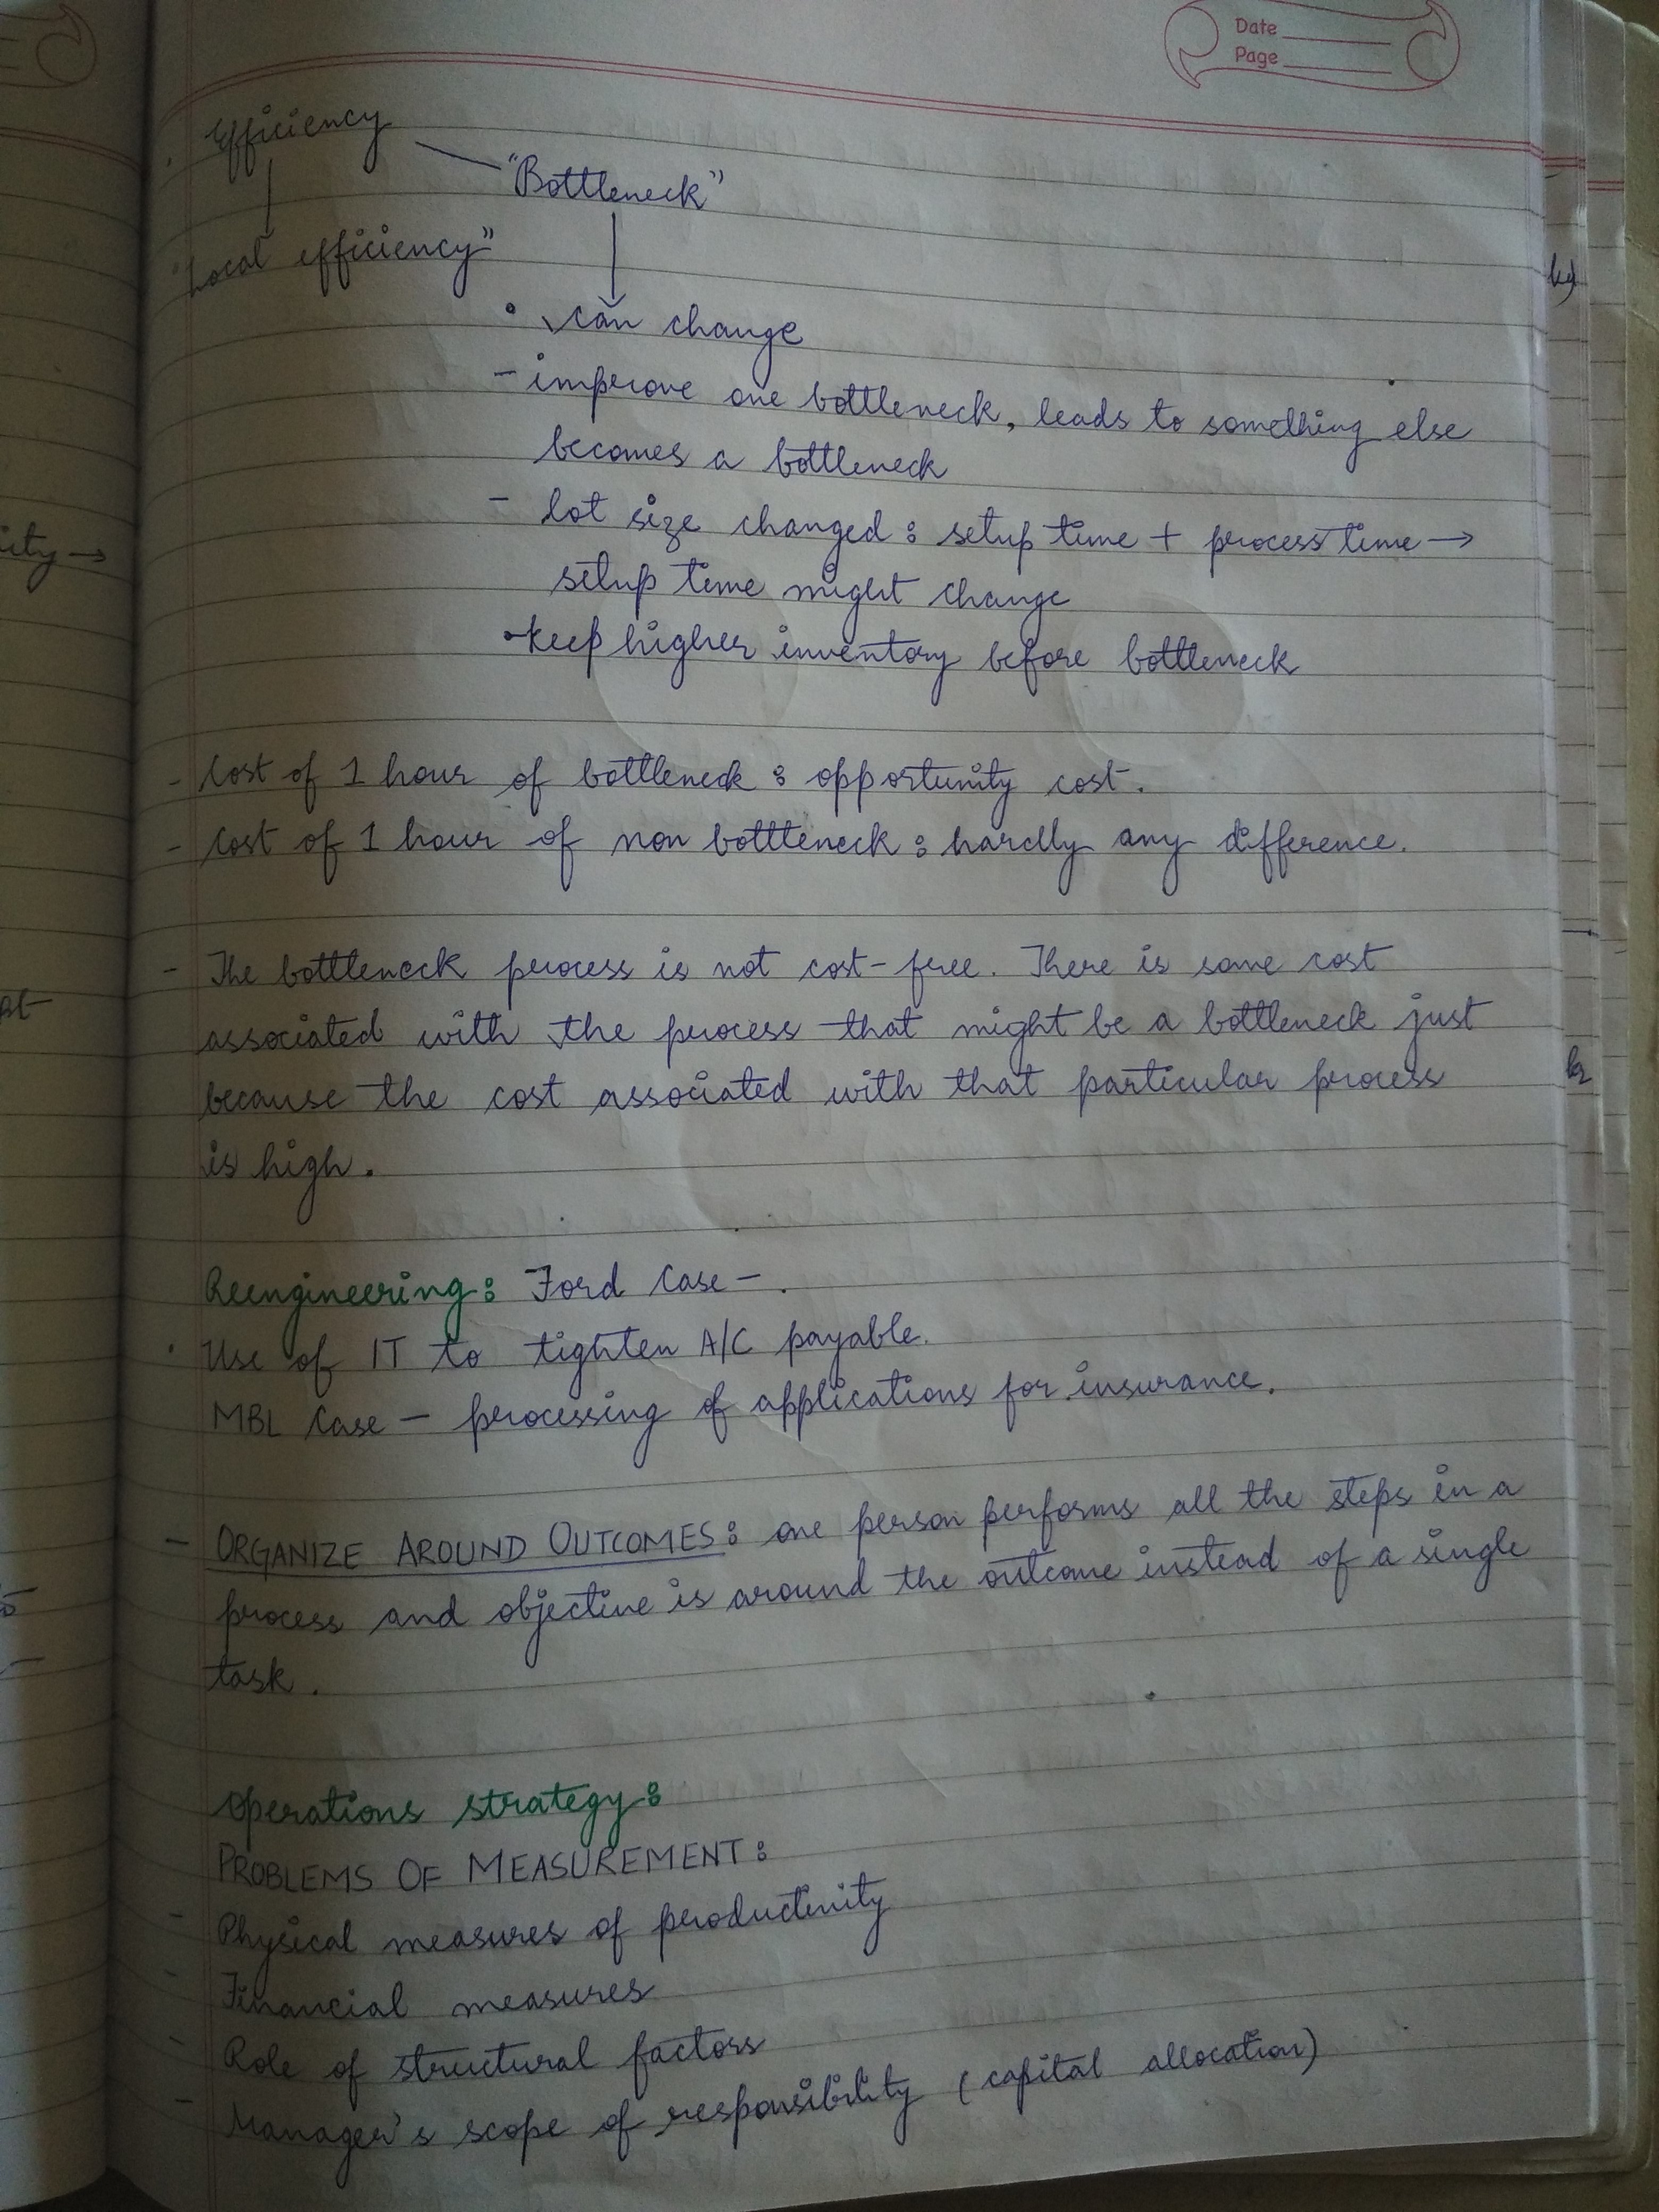 Date
Page
Efficiency
"Bottleneck"
"Local efficiency"
• can change
- improve one bottleneck, leads to something else
becomes a bottleneck
- lot size changed : setup time + process time →
setup time might change
• keep higher inventory before bottleneck
- Cost of 1 hour of bottleneck : opportunity cost.
- Cost of 1 hour of non bottleneck : hardly any difference.
- The bottleneck process is not cost-free. There is some cost
associated with the process that might be a bottleneck just
because the cost associated with that particular process
is high.
Reengineering : Ford Case - .
• Use of IT to tighten A/C payable.
MBL Case - processing of applications for insurance.
- ORGANIZE AROUND OUTCOMES : one person performs all the steps in a
process and objective is around the outcome instead of a single
task.
Operations strategy :
PROBLEMS OF MEASUREMENT :
- Physical measures of productivity
- Financial measures
- Role of structural factors
- Manager's scope of responsibility (capital allocation)